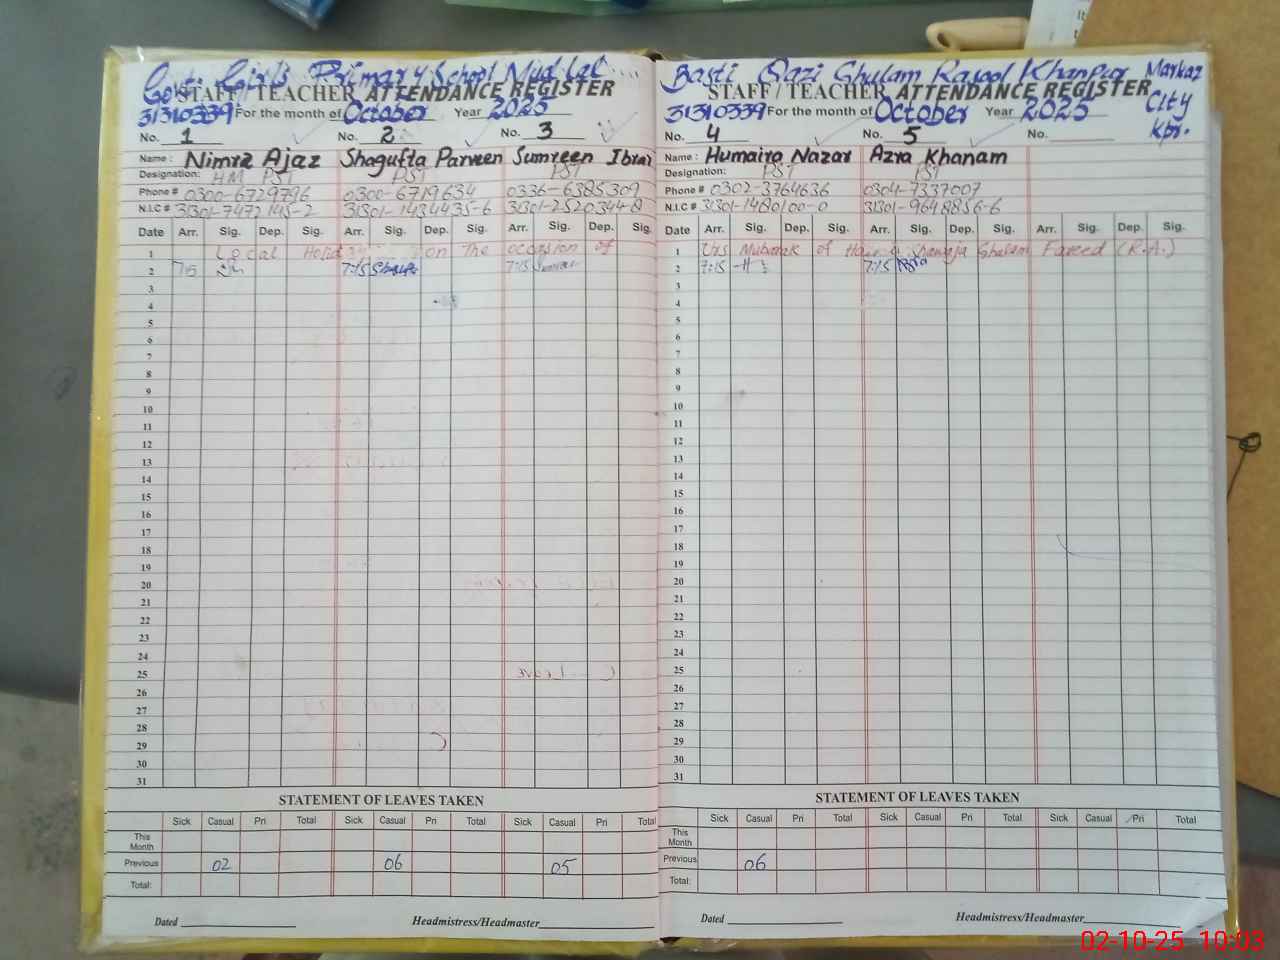 Govt: Girls Primary School Mud lal
STAFF / TEACHER ATTENDANCE REGISTER
31310339 For the month of October Year 2025
No. 1 No. 2 No. 3
Name : Nimra Ajaz Shagufta Parveen Sumreen Ibrar
Designation: HM PST PST PST
Phone # 0300-6729796 0300-6719634 0336-6385309
N.I.C # 31301-7472145-2 31301-1434435-6 31301-2520344-8
Date Arr. Sig. Dep. Sig. Arr. Sig. Dep. Sig. Arr. Sig. Dep. Sig.
1 Local Holiday on The occasion of
2 7:15 7:15 7:15
3
4
5
6
7
8
9
10
11
12
13
14
15
16
17
18
19
20
21
22
23
24
25
26
27
28
29
30
31
STATEMENT OF LEAVES TAKEN
Sick Casual Pri Total Sick Casual Pri Total Sick Casual Pri Total
This Month
Previous 02 06 05
Total:
Dated Headmistress/Headmaster
Basti Qazi Ghulam Rasool Khanpur Markaz City Kpr.
STAFF / TEACHER ATTENDANCE REGISTER
31310339 For the month of October Year 2025
No. 4 No. 5 No.
Name : Humaira Nazar Azra Khanam
Designation: PST PST
Phone # 0302-3764636 0304-7337007
N.I.C # 31301-1480100-0 31301-9648856-6
Date Arr. Sig. Dep. Sig. Arr. Sig. Dep. Sig. Arr. Sig. Dep. Sig.
1 Urs Mubarak of Khawaja Ghulam Fareed (R.A.)
2 7:15 7:15 Azra
3
4
5
6
7
8
9
10
11
12
13
14
15
16
17
18
19
20
21
22
23
24
25
26
27
28
29
30
31
STATEMENT OF LEAVES TAKEN
Sick Casual Pri Total Sick Casual Pri Total Sick Casual Pri Total
This Month
Previous 06
Total:
Dated Headmistress/Headmaster
02-10-25 10:03